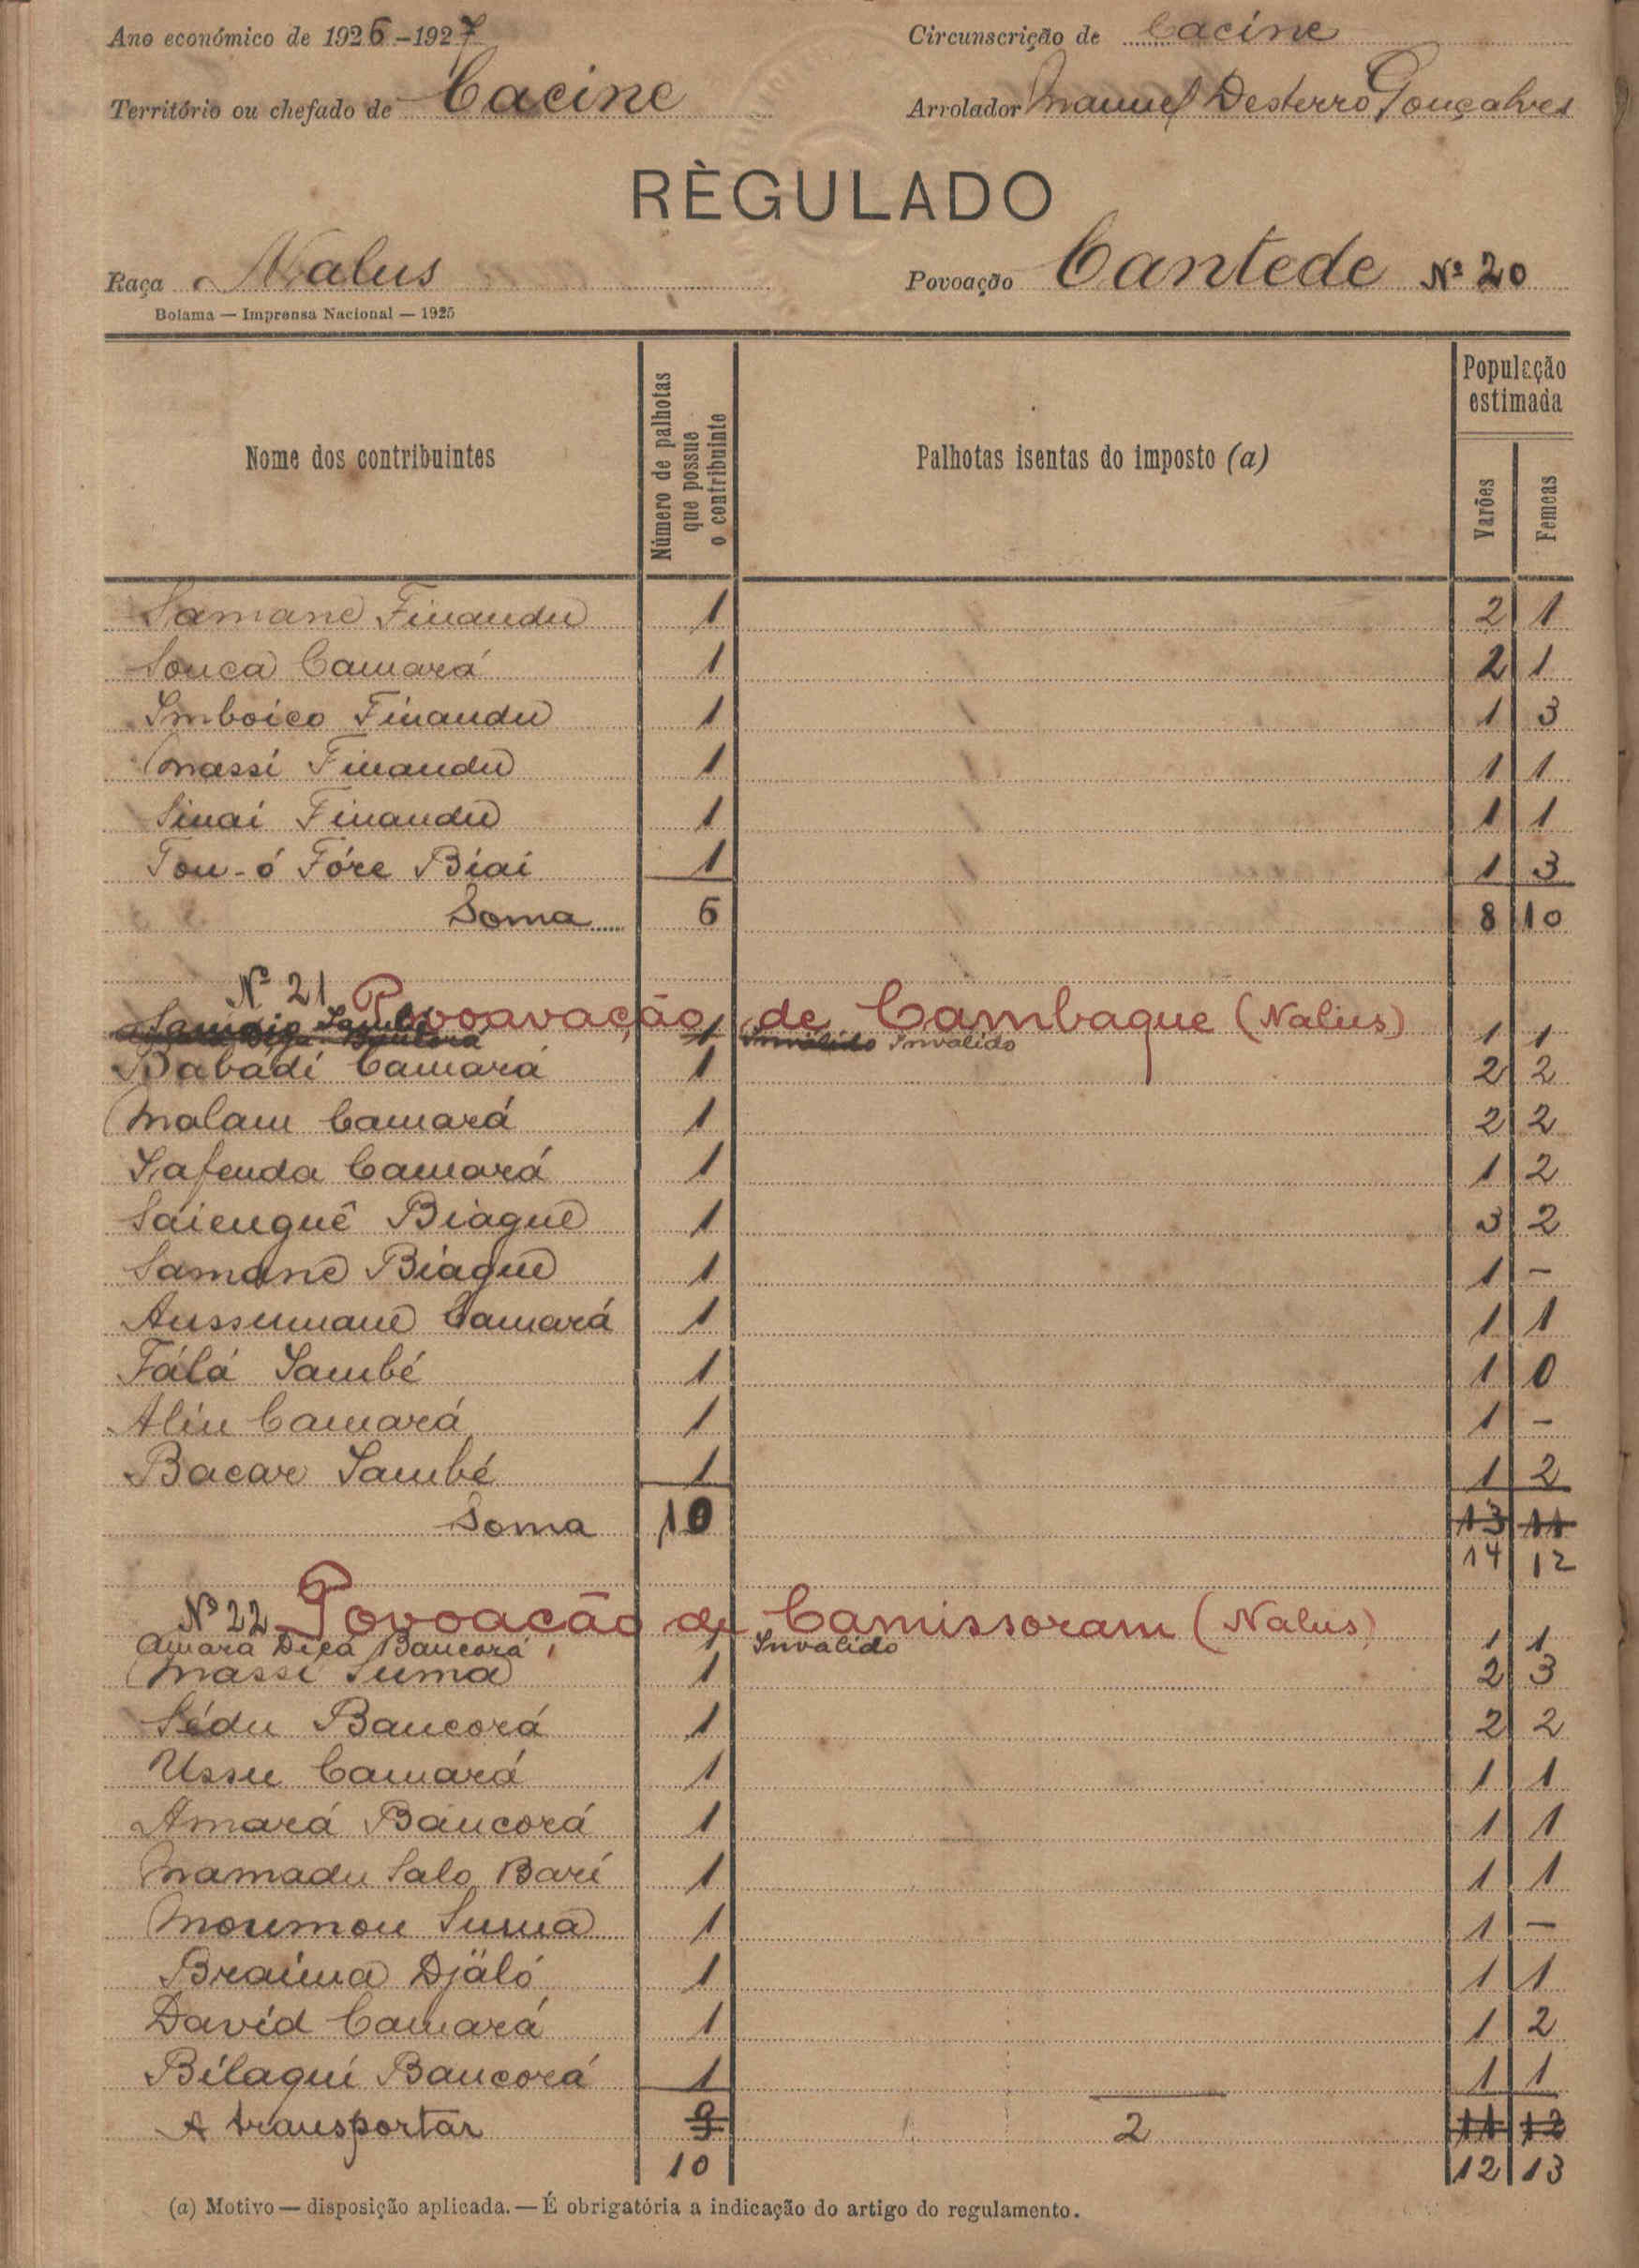 Ano económico de 1926-1927 Circunscrição de Cacine
Território ou chefado de Cacine Arrolador Manuel Desterro Gonçalves
RÈGULADO
Raça Nalus Povoação Cantede Nº 20
Bolama — Imprensa Nacional — 1925
Nome dos contribuintes Número de palhotas que possue o contribuinte Palhotas isentas do imposto (a) População estimada Varões Femeas
Samane Finandu 1 2 1
Souca Camará 1 2 1
Imboico Finandu 1 1 3
Massi Finandu 1 1 1
Sinai Finandu 1 1 1
Tou-ó Fóre Biai 1 1 3
Soma 6 8 10
Nº 21 Povoavação de Cambaque (Nalus)
1 Invalido Invalido 1 1
Babádi Camará 1 2 2
Malam Camará 1 2 2
Safenda Camará 1 1 2
Saienguê Biague 1 3 2
Samane Biague 1 1 -
Aussumane Camará 1 1 1
Fálá Sambé 1 1 0
Aliu Camará 1 1 -
Bacar Sambé 1 1 2
Soma 10 13 11
14 12
Nº 22 Povoacão de Camissoram (Nalus)
Amara Dica Bancorá 1 Invalido 1 1
Massi Suma 1 2 3
Sédu Bancorá 1 2 2
Ussu Camará 1 1 1
Amará Bancorá 1 1 1
Mamadu Salo Bari 1 1 1
Moumou Suma 1 1 -
Braima Djäló 1 1 1
David Camará 1 1 2
Bilaqui Bancorá 1 1 1
A transportar 9 2 11 12
10 12 13
(a) Motivo — disposição aplicada. — É obrigatória a indicação do artigo do regulamento.